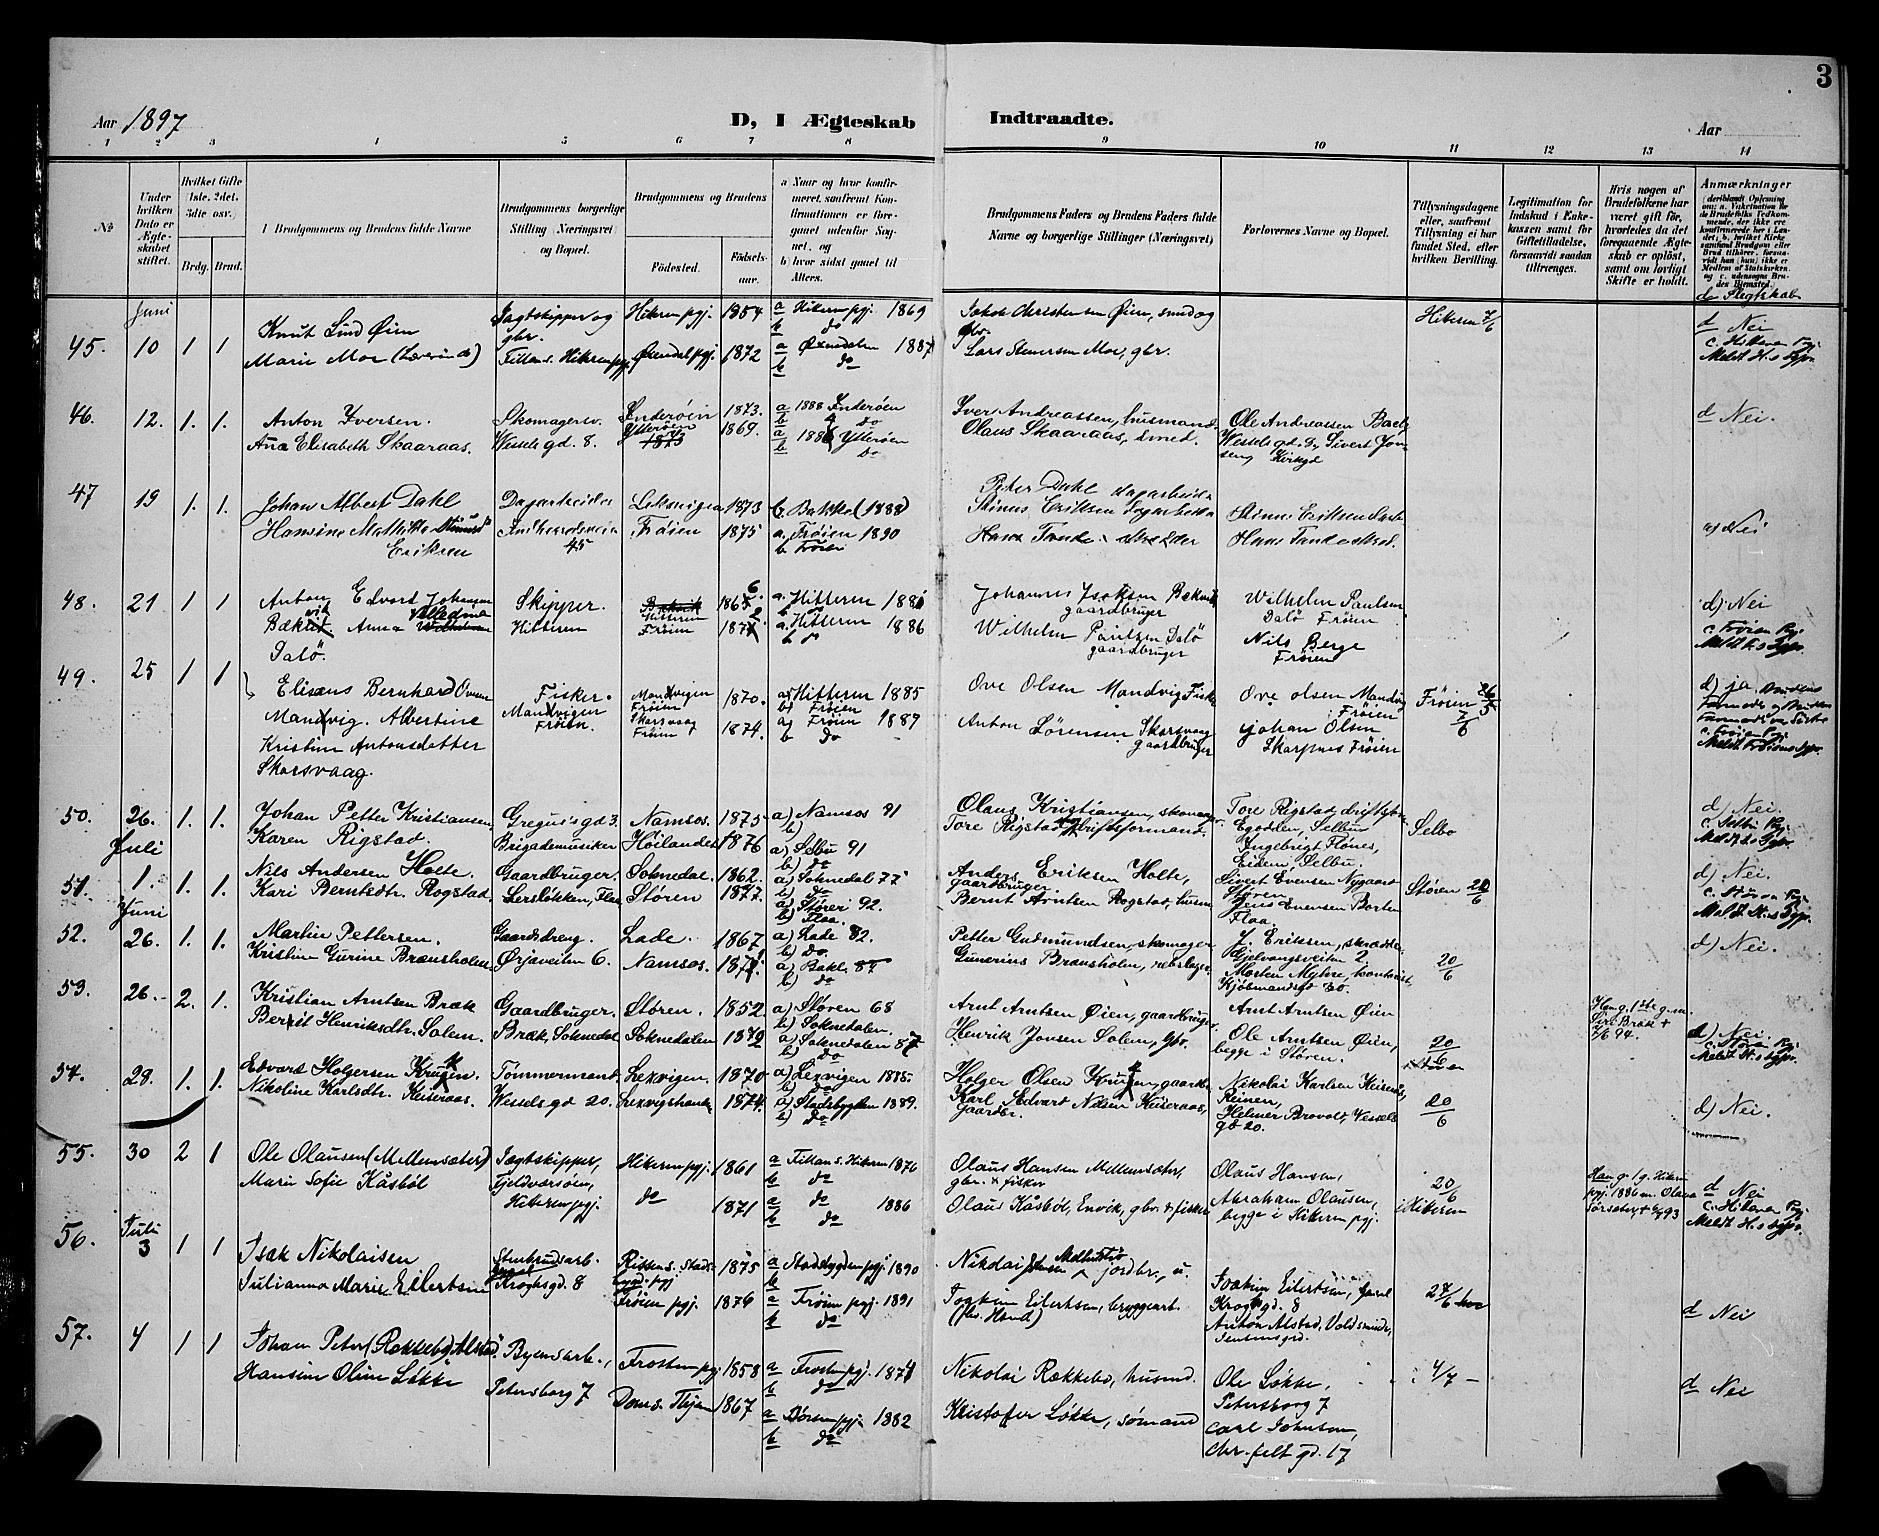 3
Aar 1897
D, I Ægteskab Indtraadte.
Aar
1 2 3 4 5 6 7 8 9 10 11 12 13 14
№
Under hvilken Dato er Ægteskabet stiftet.
Hvilket Gifte (1ste, 2det, 3die osv.)
Brdg. Brud.
Brudgommens og Brudens fulde Navne
Brudgommens borgerlige Stilling (Næringsvei) og Bopæl.
Brudgommens og Brudens
Fødested.
Fødselsaar.
a) Naar og hvor konfirmeret, saafremt Konfirmationen er foregaaet udenfor Sognet, og
b) hvor sidst gaaet til Alters.
Brudgommens Faders og Brudens Faders fulde Navne og borgerlige Stillinger (Næringsvei)
Forlovernes Navne og Bopæl.
Tillysningsdagene eller, saafremt Tillysning ei har fundet Sted, efter hvilken Bevilling.
Legitimation for Indskud i Enkekassen samt for Giftetilladelse, forsaavidt saadan tiltrænges.
Hvis nogen af Brudefolkene har været gift før, hvorledes da det foregaaende Ægteskab er opløst, samt om lovligt Skifte er holdt.
Anmærkninger
d. Slegtskab
Juni
45. 10 1 1 Knut Lund Øien Jagtskipper og gbr. Hiteren pgj. 1854 a Hiteren pgj. 1869 b do Jakob Christensen Øien, smed og gbr. Hiteren 7/6 d Nei
Marie Moe Fillan s. Hiteren pgj. Øxendal pgj. 1872 a Øxendalen 1887 b do Lars Steversen Moe, gbr. c. Hiteren Pgj. Meldt H.s Sgpr.
46. 12. 1. 1. Anton Iversen. Skomagersv. Inderøen 1873. a 1888 Inderøen b do Iver Andreassen, husmand Ole Andreassen Bach d Nei.
Ana Elisabeth Skaaraas. Wesselsgd. 8. Ytterøen 1873 1869. a 1884 Ytterøen b Do Olaus Skaaraas, smed. Wesselsgd. 8, Sivert Jonsen, Kirkgd
47 19 1. 1. Johan Albert Dahl Dagarbeider Leksvigen 1873 b. Bakke (1888) Peter Dahl dagarbeider
Hansine Mathilde Eriksen 45 Frøien 1875 a. Frøien 1890 b Frøien Stinus Eriksen Dagarbeider Stinus Eriksen a) Nei
48. 21 1 1 Anton Edvard Johansen Skipper. Bækvik Hitteren 1866 a. Hitteren 1881 Johannes Isaksen Bekvik gaardbruger Wilhelm Paulsen Dalø Frøien d) Nei
Bækvik Anna Dalø. Hitteren Frøien 1872 a. Hitteren 1886 b do Wilhelm Paulsen Dalø gaardbruger Nils Berge Frøien c. Frøien Pgj. Meldt F.s Sgpr.
49. 25 1 1 Eliseus Bernhard Ovesen Fisker. Mandvigen Frøien 1870. a) Hitteren 1885 b) Frøien Ove Olsen Mandvig Fisker Ove Olsen Mandvig Frøien Frøien 26/5 7/6 d) ja.
Mandvig. Albertine Kristine Antonsdatter Skarsvaag. Mandvigen Frøien. Skarsvaag Frøien 1874. a) Frøien 1889 b do Anton Lørensen Skarsvaag gaardbruger Johan Olsen Skarpnes Frøien c. Frøien Pgj. Meldt Frøiens Sgpr.
50. 26. 1. 1. Johan Petter Kristiansen Gregus's gd 3. Namsos. 1875. a) Namsos 91 b) Olaus Kristiansen, skomager Tore Rigstad driftsfor. Selbo d) Nei.
Karen Rigstad. Brigademusiker Høilandet 1876 a) Selbu 91 b) do Tore Rigstad, driftsformand. Egodden, Selbu Ingebrigt Flønes, Eidem, Selbu. c. Selbu Pgj. Meldt S.s Sgpr.
Juli
51. 1. 1. 1. Nils Andersen Holte Gaardbruger. Soknedal. 1862. a) Soknedal 77 b) do Anders Eriksen Holte, gaardbruger Sivert Evensen Nygaard Støren Støren 20/6 d) Nei.
Kari Berntsdtr. Rogstad. Lersløkken, Flaa Støren 1877. a) Støren 92. b) Flaa. Bernt Arntsen Rogstad, husm. Jens Evensen Borten Flaa c. Støren Pgj. Meldt St.s Sgpr.
Juni
52. 26. 1. 1. Martin Pettersen. Gaardsdreng. Lade. 1867 a) Lade 82. b) Do Petter Gudmundsen, skomager J. Eriksen, skrædder Gjelvangsveiten 2. 20/6 d) Nei.
Kristine Gurine Brænsholm Ørjaveiten 6. Namsos. a) Bakl. 87 b) do Gunerius Brænsholm, rebslager. Morten Myhre, kontorist, Kjøbmandsgd 30.
53. 26. 2. 1. Kristian Arntsen Bræk Gaardbruger. Støren. 1852 a) Støren 68 b) Soknedalen. Arnt Arntsen Øien, gaardbruger. Arnt Arntsen Øien Han g. 1ste g. m. Siri Bræk + 7/6 94.
Berit Henriksdtr. Solem. Bræk, Soknedal Soknedalen 1872 a) Soknedalen 87 b) do Henrik Jonsen Solem, gbr. Ole Arntsen Øien, begge i Støren. 20/6 i Støren d) Nei c. Støren Pgj. Meldt St.s Sgpr.
54. 28. 1. 1. Edvard Holgersen Tømmermand. Lexvigen. 1870 a) Lexvigen 1885. b) do Holger Olsen gaardbr. Nikolai Karlsen Keiseraas, Reinen, 20/6 d) Nei.
Nikoline Karlsdtr. Keiseraas. Wesselsgd 20. Lexvigstranden 1874. a) Stadsbygden 1889. b) do Karl Edvart Nilsen Keiseraas, Gaardbr. Helmer Brovolt, Wesselsgd 20.
55. 30 2 1 Ole Olausen (Mellemsæter) Jægtskipper, Hiteren pgj. 1861 a Fillan s. Hiteren 1876 b do Olaus Hansen Mellemsæter, gbr. & fisker Olaus Hansen, 20/6 Han g. 1 g. Hiteren pgj. 1886 m. Olava d Nei
Marie Sofie Kåsbøl Fjeldværsøen, Hiteren pgj. do 1871 a do 1886 b do Olaus Kåsbøl, Envik, gbr. & fisker Abraham Olausen, begge i Hiteren pgj. i Hiteren c. Hiteren Pgj. Meldt H.s Sgpr.
Juli
56. 3 1 1 Isak Nikolaisen Stenbrudsarb. Rissen s. Stadsbygd. pgj 1875 a Stadsbygden pgj. 1890 b Nikolai Jensen jordbr., u. Joakim Eilertsen, Kroghsgd. 8 28/6 d Nei
Julianna Marie Eilertsen Kroghsgd. 8 Frøien pgj. 1876 a Frøien pgj. 1891 b do Joakim Eilertsen, bryggearb. Anton Alstad, Voldsminde,
57. 4 1 1 Johan Peter (Rokkeby) Alstad Byensarb., Frosten pgj 1858 a Frosten pgj. 1874 b do Nikolai Rækkebo, husmd. Ole Løkke, Petersborg 7 4/7 d Nei
Hansine Oline Løkke Petersborg 7 Doms. Thjem 1867 a Børsen pgj. 1882 b do Kristofer Løkke, sømand Carl Johnson, Chr. felt gd. 17